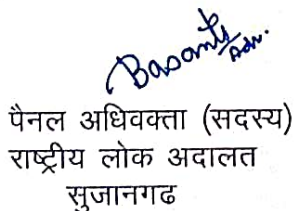 Basanti
Adv.
पैनल अधिवक्ता (सदस्य)
राष्ट्रीय लोक अदालत
सुजानगढ